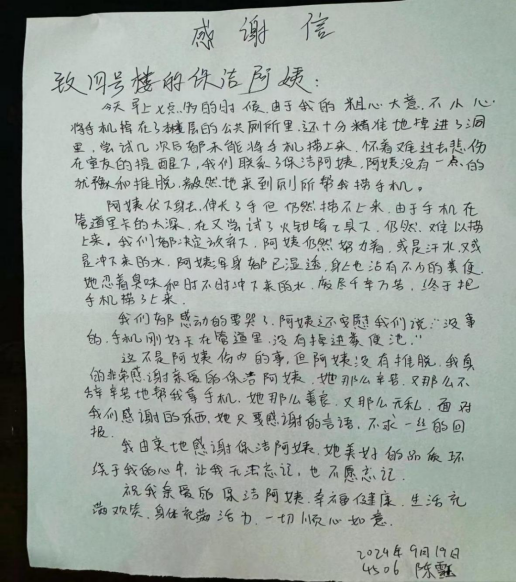 感谢信
致四号楼的保洁阿姨：
今天早上七点多的时候，由于我的粗心大意，不小心
将手机掉在了楼层的公共厕所里，还十分精准地掉进了洞
里，尝试几次后都未能将手机捞上来，怀着难过悲伤
在室友的提醒下，我们联系了保洁阿姨，阿姨没有一点的
犹豫和推脱，毅然地来到厕所帮我捞手机。
阿姨伏下身去，伸长了手但仍然捞不上来，由于手机在
管道里卡的太深，在又尝试了火钳等工具下，仍然难以捞
上来，我们都决定放弃了，阿姨仍然努力着，或是汗水，又或
是冲下来的水，阿姨浑身都已湿透，身上也沾有不少的粪便
她忍着臭味和时不时冲下来的水，废尽千辛万苦，终于把
手机捞了上来。
我们都感动的要哭了，阿姨还安慰我们说：“没事
的，手机刚好卡在管道里，没有掉进粪便池。”
这不是阿姨份内的事，但阿姨没有推脱，我真
的非常感谢亲爱的保洁阿姨，她那么辛苦，又那么不
辞辛苦地帮我捞手机，她那么善良，又那么无私，面对
我们感谢的东西，她只要感谢的言语，不求一丝的回
报。
我由衷地感谢保洁阿姨，她美好的品质环
绕于我的心中，让我无法忘记，也不愿忘记。
祝我亲爱的保洁阿姨，幸福健康，生活充
满欢笑，身体充满活力，一切顺心如意。
2024年9月19日
4506 陈